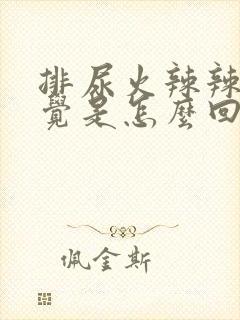 排尿火辣辣
覺是怎麼回
佩金斯